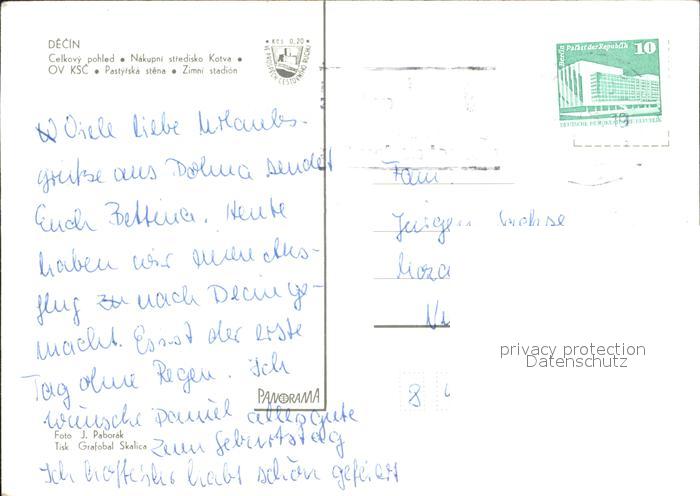 DĚČÍN
Celkový pohled • Nákupní středisko Kotva •
OV KSČ • Pastýřská stěna • Zimní stadión
Kčs 0,20
VE PROSPĚCH CESTOVNÍHO RUCHU
Berlin Palast der Republik 10
DEUTSCHE DEMOKRATISCHE REPUBLIK
19
Viele liebe Urlaubs-
grüße aus Dohma sendet
Euch Bettina. Heute
haben wir einen Aus-
flug nach Decin ge-
macht. Es ist der erste
Tag ohne Regen. Ich
wünsche Daniel alles gute
zum Geburtstag
Ich hoffe ihr habt schön gefeiert
Fam.
Jürgen
8
privacy protection
Datenschutz
PANORAMA
Foto J. Paborák
Tisk Grafobal Skalica